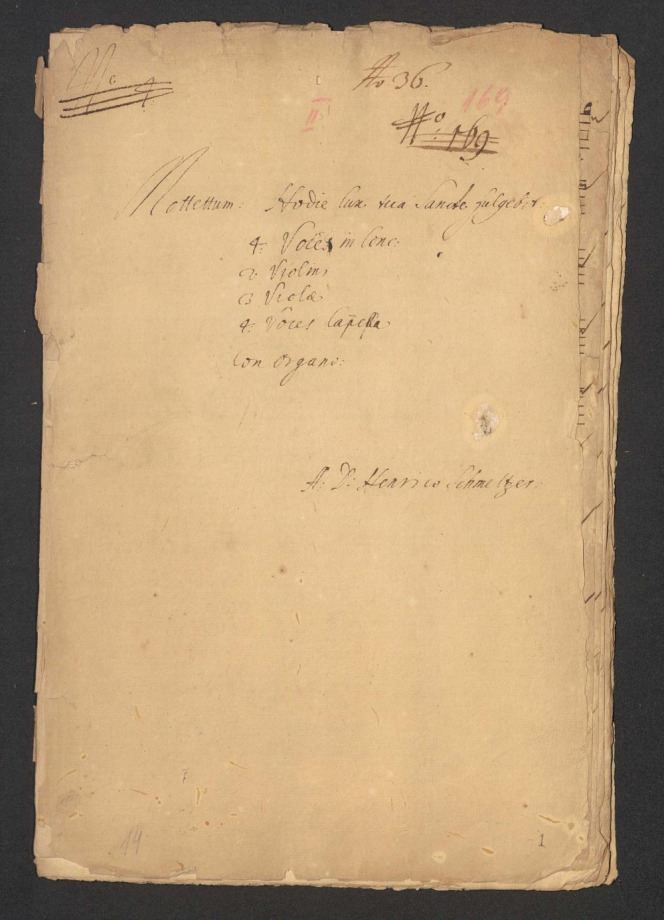 No 36.
169
II
No. 169
Mottettum: Hodie lux tua Sancte fulgebit:
4: Voces in Conc:
2: Violini
3 Violæ
4: Voces Capella
Con Organo:
A: D: Henrico Schmeltzer:
14
1